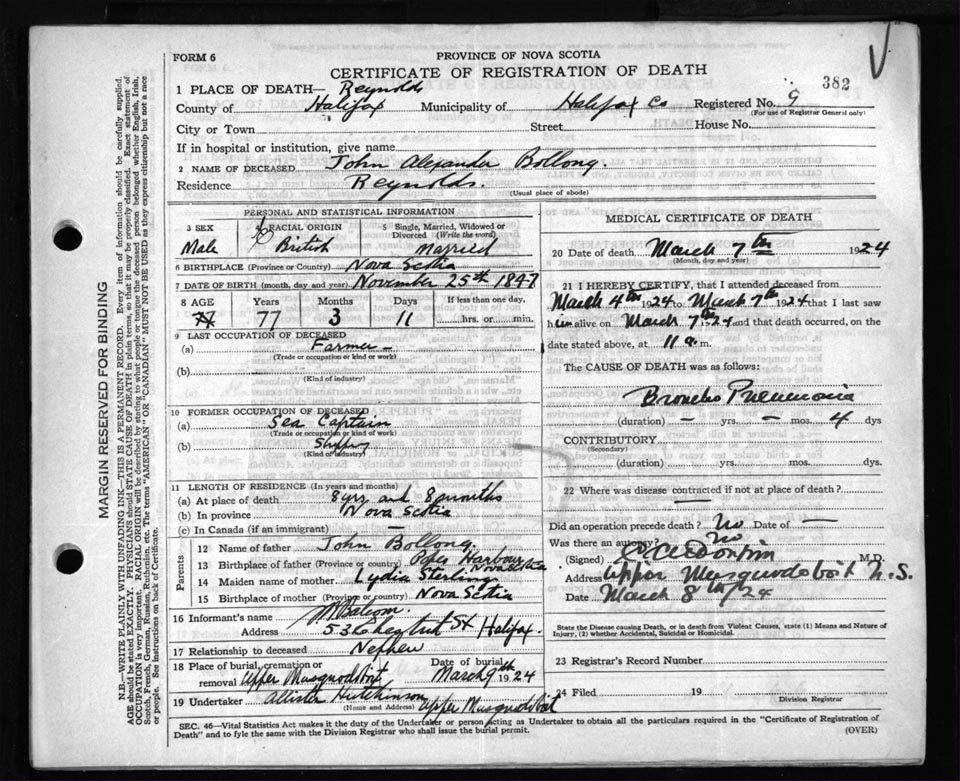 FORM 6
PROVINCE OF NOVA SCOTIA
CERTIFICATE OF REGISTRATION OF DEATH
382
1 PLACE OF DEATH— Reynolds
County of Halifax Municipality of Halifax Co Registered No. 9
(For use of Registrar General only)
City or Town Street House No.
If in hospital or institution, give name
2 NAME OF DECEASED John Alexander Bollong.
Residence Reynolds.
(Usual place of abode)
PERSONAL AND STATISTICAL INFORMATION
3 SEX 4 RACIAL ORIGIN 5 Single, Married, Widowed or Divorced (Write the word)
Male British Married
6 BIRTHPLACE (Province or Country) Nova Scotia
7 DATE OF BIRTH (month, day and year) November 25th 1847
8 AGE Years Months Days If less than one day,
77 77 3 11 hrs. or min.
9 LAST OCCUPATION OF DECEASED
(a) Farmer —
(Trade or occupation or kind of work)
(b)
(Kind of industry)
10 FORMER OCCUPATION OF DECEASED
(a) Sea Captain
(Trade or occupation or kind of work)
(b)
(Kind of industry)
11 LENGTH OF RESIDENCE (In years and months)
(a) At place of death 8 yrs and 8 months
(b) In province Nova Scotia
(c) In Canada (if an immigrant) —
Parents
12 Name of father John Bollong
13 Birthplace of father (Province or country) Popes Harbour Nova Scotia
14 Maiden name of mother Lydia Sterling
15 Birthplace of mother (Province or country) Nova Scotia
16 Informant's name
Address St Halifax.
17 Relationship to deceased Nephew
18 Place of burial, cremation or removal Upper Musquodoboit Date of burial March 9th 1924
19 Undertaker Allister Hutchinson Upper Musquodoboit
(Name and Address)
MEDICAL CERTIFICATE OF DEATH
20 Date of death March 7th 1924
(Month, day and year)
21 I HEREBY CERTIFY, that I attended deceased from
March 4th 1924 to March 7th 1924 that I last saw
him alive on March 7th 1924 and that death occurred, on the
date stated above, at 11 a.m.
The CAUSE OF DEATH was as follows:
Broncho Pneumonia
(duration) — yrs. — mos. 4 dys
CONTRIBUTORY
(Secondary)
(duration) yrs. mos. dys.
22 Where was disease contracted if not at place of death?
Did an operation precede death? No Date of —
Was there an autopsy? No
(Signed) M.D.
Address Upper Musquodoboit N.S.
Date March 8th / 24
State the Disease causing Death, or in death from Violent Causes, state (1) Means and Nature of
Injury, (2) whether Accidental, Suicidal or Homicidal.
23 Registrar's Record Number
24 Filed 19
Division Registrar
SEC. 46—Vital Statistics Act makes it the duty of the Undertaker or person acting as Undertaker to obtain all the particulars required in the "Certificate of Registration of
Death" and to fyle the same with the Division Registrar who shall issue the burial permit.
(OVER)
MARGIN RESERVED FOR BINDING
N.B.—WRITE PLAINLY WITH UNFADING INK—THIS IS A PERMANENT RECORD. Every item of information should be carefully supplied.
AGE should be stated EXACTLY. PHYSICIANS should STATE CAUSE OF DEATH in plain terms, so that it may be properly classified. Exact statement of
OCCUPATION is very important. RACIAL ORIGIN will be described by stating to what people or tongue the deceased person belonged whether English, Irish,
Scotch, French, German, Russian, Ruthenian, etc. The terms "AMERICAN" OR "CANADIAN" MUST NOT BE USED as they express citizenship but not a race
or people. See instructions on back of Certificate.